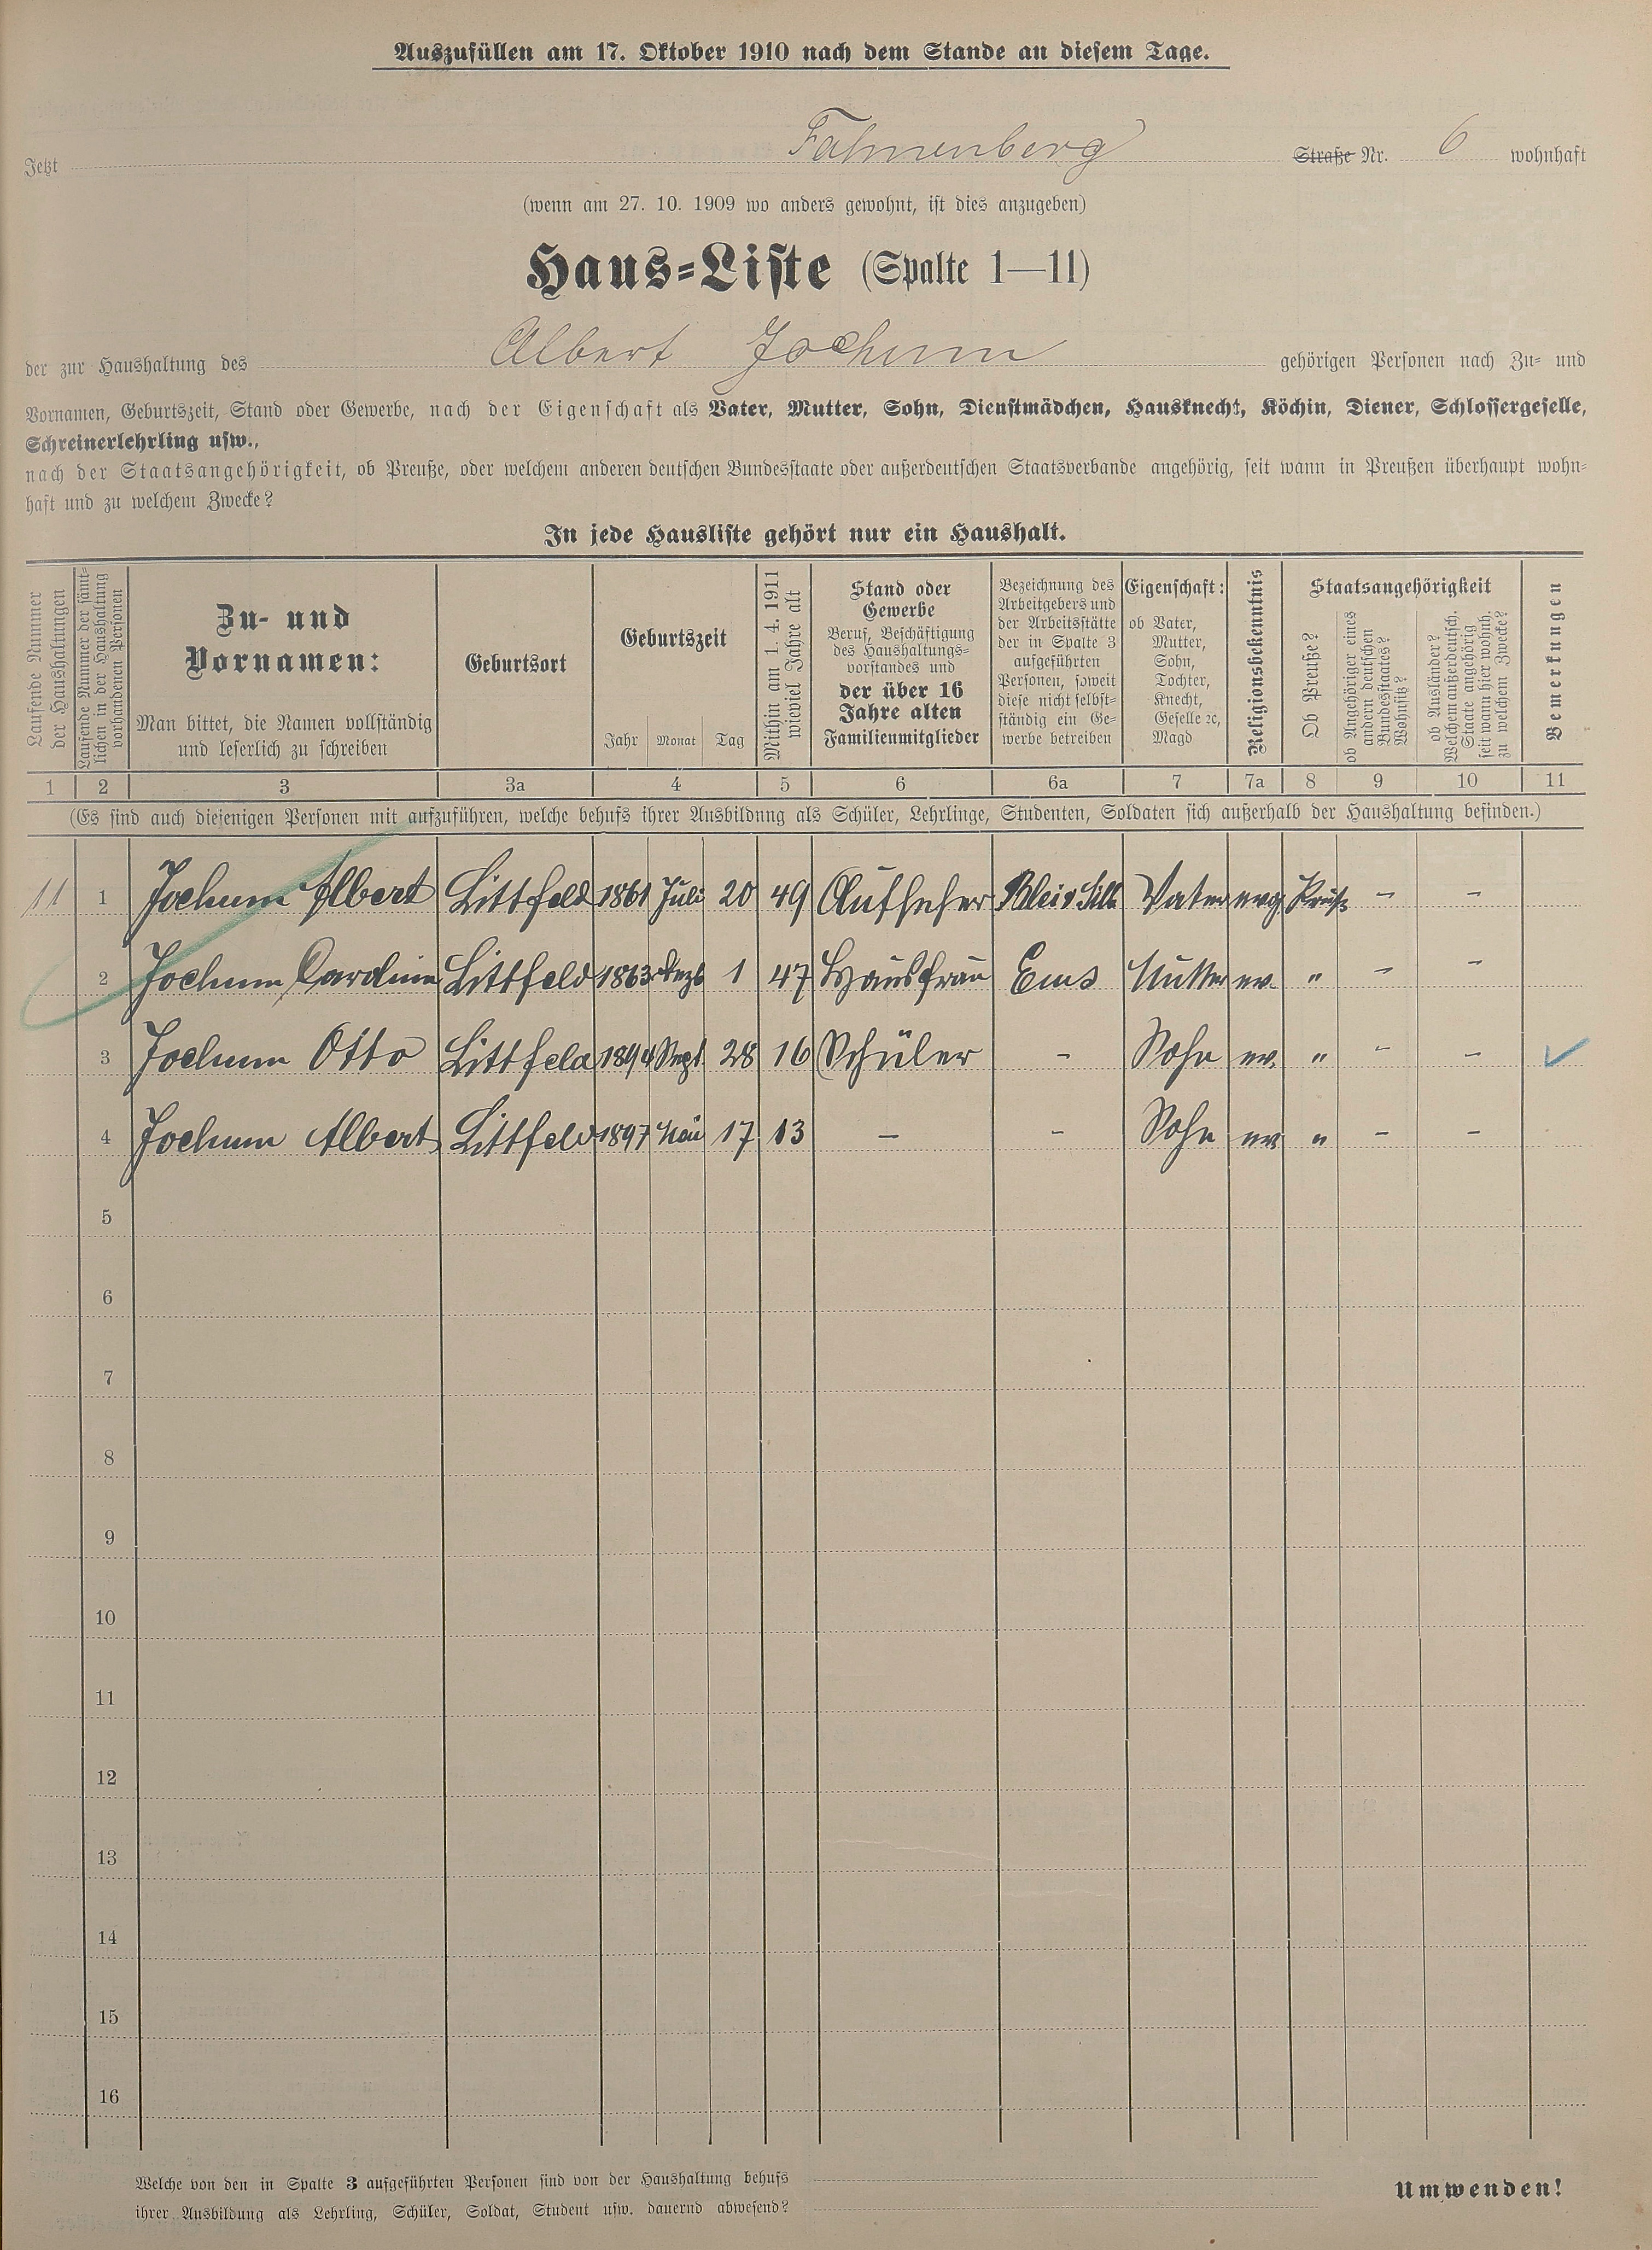 Auszufüllen am 17. Oktober 1910 nach dem Stande an diesem Tage.
Jetzt Fahnenberg Straße Nr. 6 wohnhaft
(wenn am 27. 10. 1909 wo anders gewohnt, ist dies anzugeben)
Haus-Liste (Spalte 1—11)
der zur Haushaltung des Albert Jochum gehörigen Personen nach Zu- und
Vornamen, Geburtszeit, Stand oder Gewerbe, nach der Eigenschaft als Vater, Mutter, Sohn, Dienstmädchen, Hausknecht, Köchin, Diener, Schlossergeselle,
Schreinerlehrling usw.,
nach der Staatsangehörigkeit, ob Preuße, oder welchem anderen deutschen Bundesstaate oder außerdeutschen Staatsverbande angehörig, seit wann in Preußen überhaupt wohn-
haft und zu welchem Zwecke?
In jede Hausliste gehört nur ein Haushalt.
Laufende Nummer
der Haushaltungen
Laufende Nummer der sämt-
lichen in der Haushaltung
vorhandenen Personen
Zu- und
Vornamen:
Man bittet, die Namen vollständig
und leserlich zu schreiben
Geburtsort
Geburtszeit
Jahr Monat Tag
Mithin am 1. 4. 1911
wieviel Jahre alt
Stand oder
Gewerbe
Beruf, Beschäftigung
des Haushaltungs-
vorstandes und
der über 16
Jahre alten
Familienmitglieder
Bezeichnung des
Arbeitgebers und
der Arbeitsstätte
der in Spalte 3
aufgeführten
Personen, soweit
diese nicht selbst-
ständig ein Ge-
werbe betreiben
Eigenschaft:
ob Vater,
Mutter,
Sohn,
Tochter,
Knecht,
Geselle ꝛc,
Magd
Religionsbekenntnis
Staatsangehörigkeit
Ob Preuße?
ob Angehöriger eines
andern deutschen
Bundesstaates?
Wohnsitz?
ob Ausländer?
Welchem außerdeutsch.
Staate angehörig
seit wann hier wohnh.
zu welchem Zwecke?
Bemerkungen
1 2 3 3a 4 5 6 6a 7 7a 8 9 10 11
(Es sind auch diejenigen Personen mit aufzuführen, welche behufs ihrer Ausbildung als Schüler, Lehrlinge, Studenten, Soldaten sich außerhalb der Haushaltung befinden.)
11 1 Jochum Albert Littfeld 1861 Juli 20 49 Aufseher Blei Silb Vater evg Preuß - -
2 Jochum Caroline Littfeld 1863 Dezb 1 47 Hausfrau Ems Mutter ev. " - -
3 Jochum Otto Littfeld 1894 Sept. 28 16 Schüler - Sohn ev. " - - ✓
4 Jochum Albert Littfeld 1897 Mai 17 13 - - Sohn ev " - -
5
6
7
8
9
10
11
12
13
14
15
16
Welche von den in Spalte 3 aufgeführten Personen sind von der Haushaltung behufs
ihrer Ausbildung als Lehrling, Schüler, Soldat, Student usw. dauernd abwesend?
Umwenden!